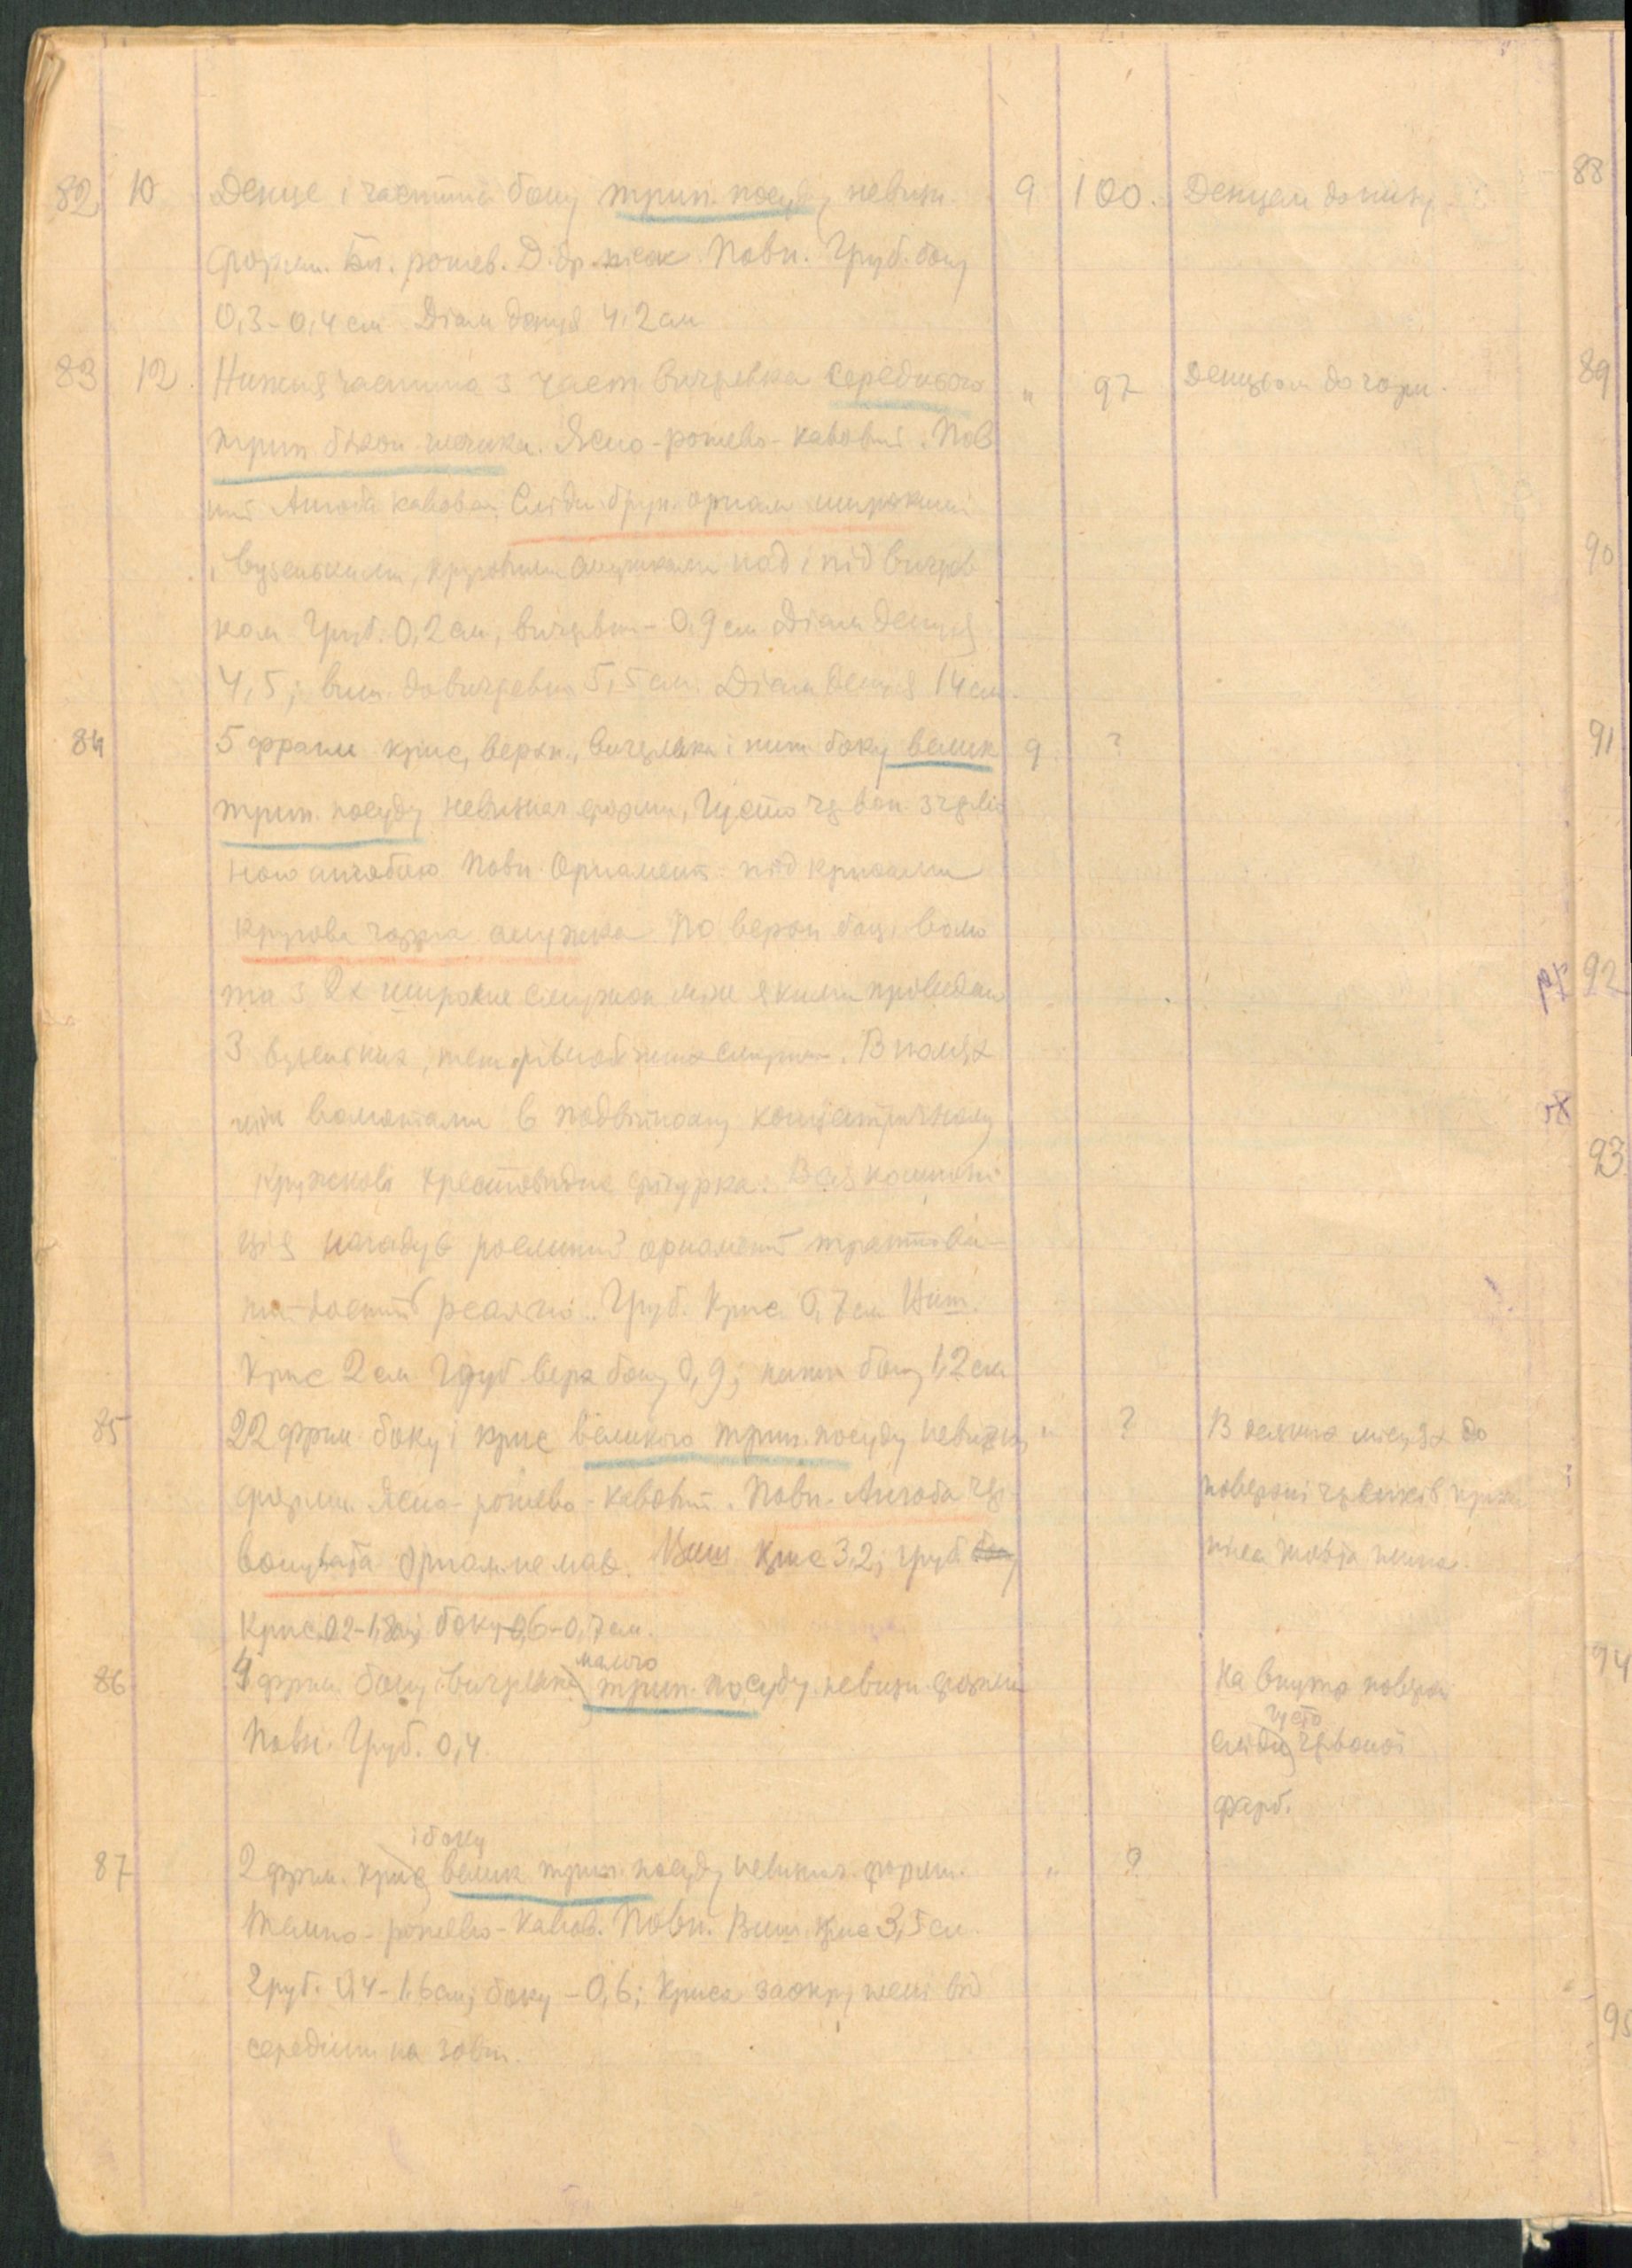 82 10 Денце і частина боку трип. посуду невизн. 9 100. Денцем до низу
форми. Бл. рожев. Д. др. пісок. Повн. Груб. боку
0,3-0,4 см Діам денця 4,2 см
83 12. Нижня частина з част. вичеревка середнього " 97 Денцем до гори.
трип. бікон. Ясно-рожево-кавовий. Пов
ний Ангоба кавова, Сліди брун. орнам широкими
і вузенькими, круговими смужками над і під вичерев
ком Груб. 0,2 см, вичеревка - 0,9 см Діам денця
4,5; вис. до вичеревка 5,5 см. Діам денця 14 см.
84 5 фрагм крис, верхн., вичеревка і ниж боку велик 9 ?
трип. посуду невизнач форми, Густо червон. з червo
ною ангобою Повн. Орнамент - під крисами
кругова чорна смужка По верхн боці воло
та з 2х широких смужок між якими проведен
3 вузеньких, смужки. В полях
між волютами в подвійному концентричному
кружкові крестовидна фігурка. Вся компози
ція нагадує рослинний орнамент
Груб. Крис 0,7 см Шир.
Крис 2 см Груб верх боку 0,9; нижн боку 1,2 см
85 22 фрагм боку і крис великого трип. посуду невизн " ? В деяких місцях до
форми. Ясно-рожево-кавовий. Повн. Ангоба чер поверхні черепків
вонувата Орнам. немає. Виш крис 3,2; груб боку
Крис 0,2-1,8 см; боку 0,6-0,7 см.
86 4 фрагм боку і вичеревка малого трип. посуду невизн. форми На внутр поверхн
Повн. Груб. 0,4 сліди густо червоної
фарб.
87 2 фрагм. крис і боку велик трип. посуду невизнач. форми. " ?
Темно-рожево-кавов. Повн. Виш крис 3,5 см
Груб. 0,4-1,6 см, боку - 0,6; Криса заокруглені від
середини на зовн.
88
89
90
91
92
93
94
95